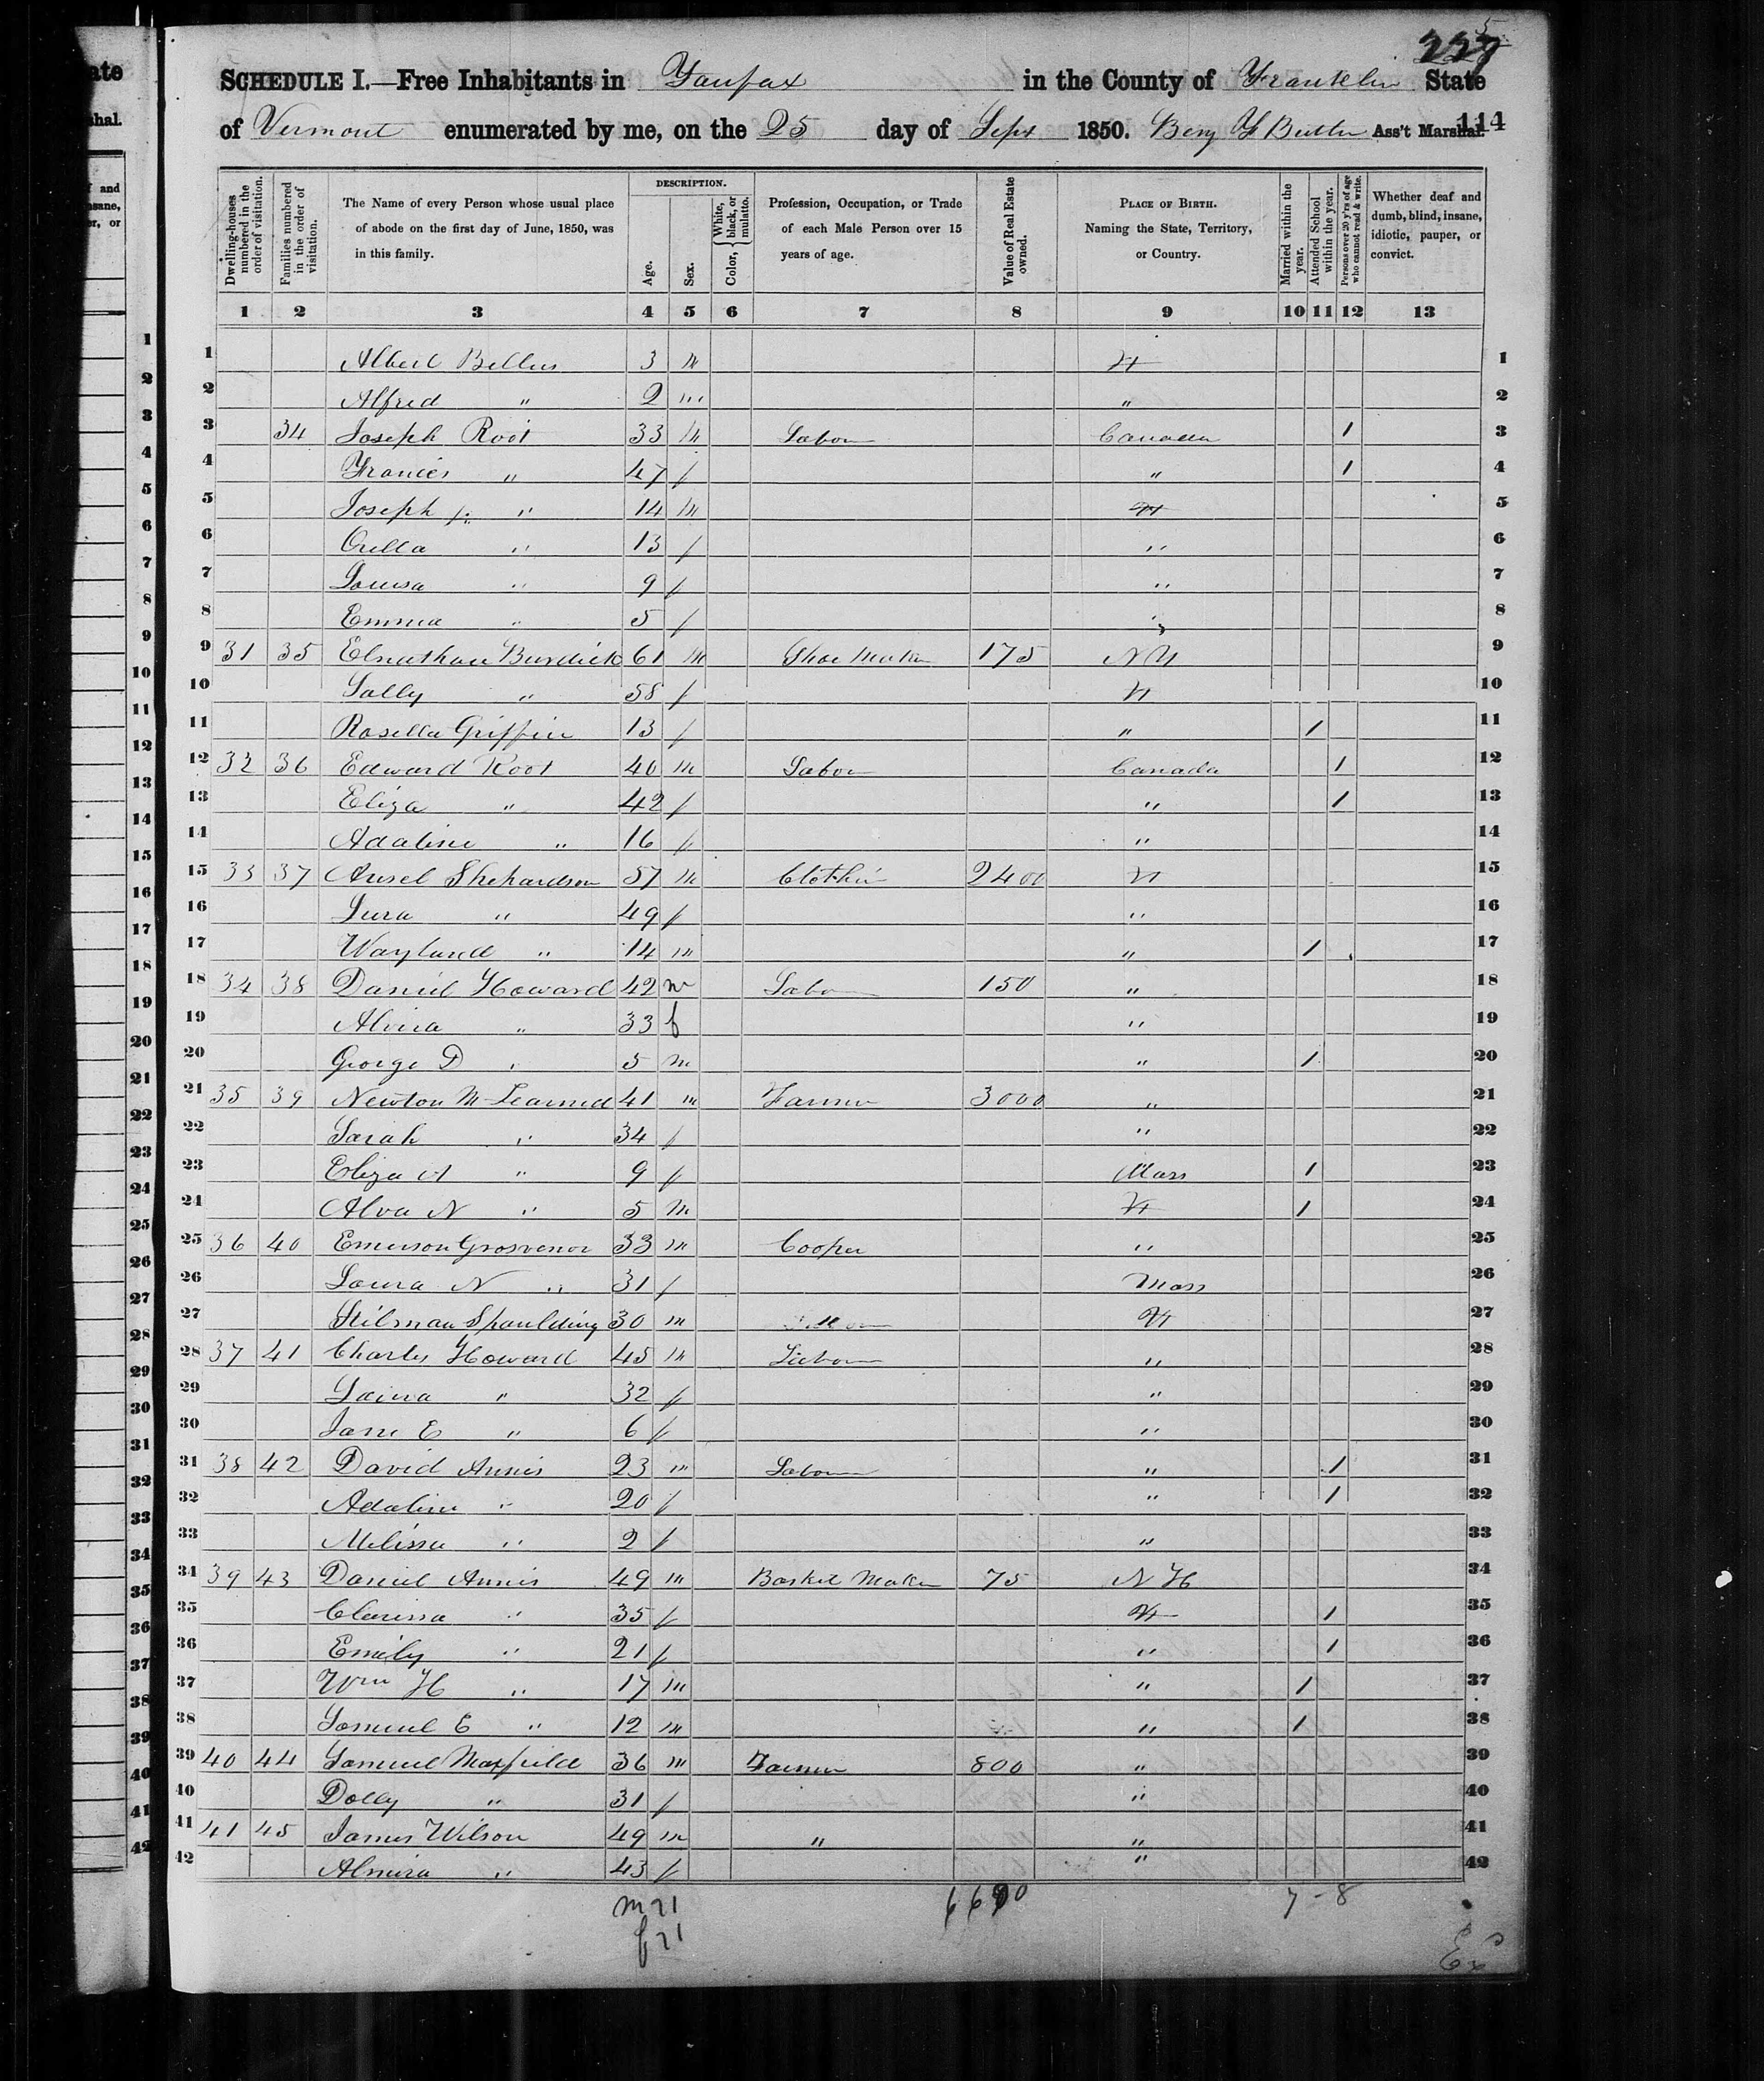 5
227
SCHEDULE I.—Free Inhabitants in Fairfax in the County of Franklin State
of Vermont enumerated by me, on the 25 day of Sept 1850. Benj F Butler Ass't Marshal. 114
Dwelling-houses numbered in the order of visitation. Families numbered in the order of visitation. The Name of every Person whose usual place of abode on the first day of June, 1850, was in this family. DESCRIPTION. Age. Sex. Color, { White, black, or mulatto. Profession, Occupation, or Trade of each Male Person over 15 years of age. Value of Real Estate owned. PLACE OF BIRTH. Naming the State, Territory, or Country. Married within the year. Attended School within the year. Persons over 20 y'rs of age who cannot read & write. Whether deaf and dumb, blind, insane, idiotic, pauper, or convict.
1 2 3 4 5 6 7 8 9 10 11 12 13
1 Albert 3 m Vt 1
2 Alfred " 2 m " 2
3 34 Joseph Root 33 m Labor Canada 1 3
4 Francis " 47 f " 1 4
5 Joseph jr " 14 m Vt 5
6 Orilla " 13 f " 6
7 Louisa " 9 f " 7
8 Emma " 5 f " 8
9 31 35 Elnathan Burdick 61 m Shoe Maker 175 N Y 9
10 Sally " 58 f Vt 10
11 Rosella Griffin 13 f " 1 11
12 32 36 Edward Root 40 m Labor Canada 1 12
13 Eliza " 42 f " 1 13
14 Adaline " 16 f " 14
15 33 37 Ansel Shepardson 57 m Clothier 2400 Vt 15
16 Lura " 49 f " 16
17 Wayland " 14 m " 1 17
18 34 38 Daniel Howard 42 m Labor 150 " 18
19 Alvira " 33 f " 19
20 George D " 5 m " 1 20
21 35 39 Newton M Learned 41 m Farmer 3000 " 21
22 Sarah " 34 f " 22
23 Eliza A " 9 f Mass 1 23
24 Alva N " 5 m Vt 1 24
25 36 40 Emerson Grosvenor 33 m Cooper " 25
26 Laura N " 31 f Mass 26
27 Stilman Spaulding 30 m Vt 27
28 37 41 Charles Howard 45 m Labor " 28
29 Laura " 32 f " 29
30 Jane E " 6 f " 30
31 38 42 David Annis 23 m Labor " 1 31
32 Adaline " 20 f " 1 32
33 Melissa " 2 f " 33
34 39 43 Daniel Annis 49 m Basket Maker 75 N H 34
35 Clarissa " 35 f Vt 1 35
36 Emily " 21 f " 1 36
37 Wm H " 17 m " 1 37
38 Samuel E " 12 m " 1 38
39 40 44 Samuel Maxfield 36 m Farmer 800 " 39
40 Dolly " 31 f " 40
41 41 45 James Wilson 49 m " " 41
42 Almira " 43 f " 42
m 21 7 - 8
f 21